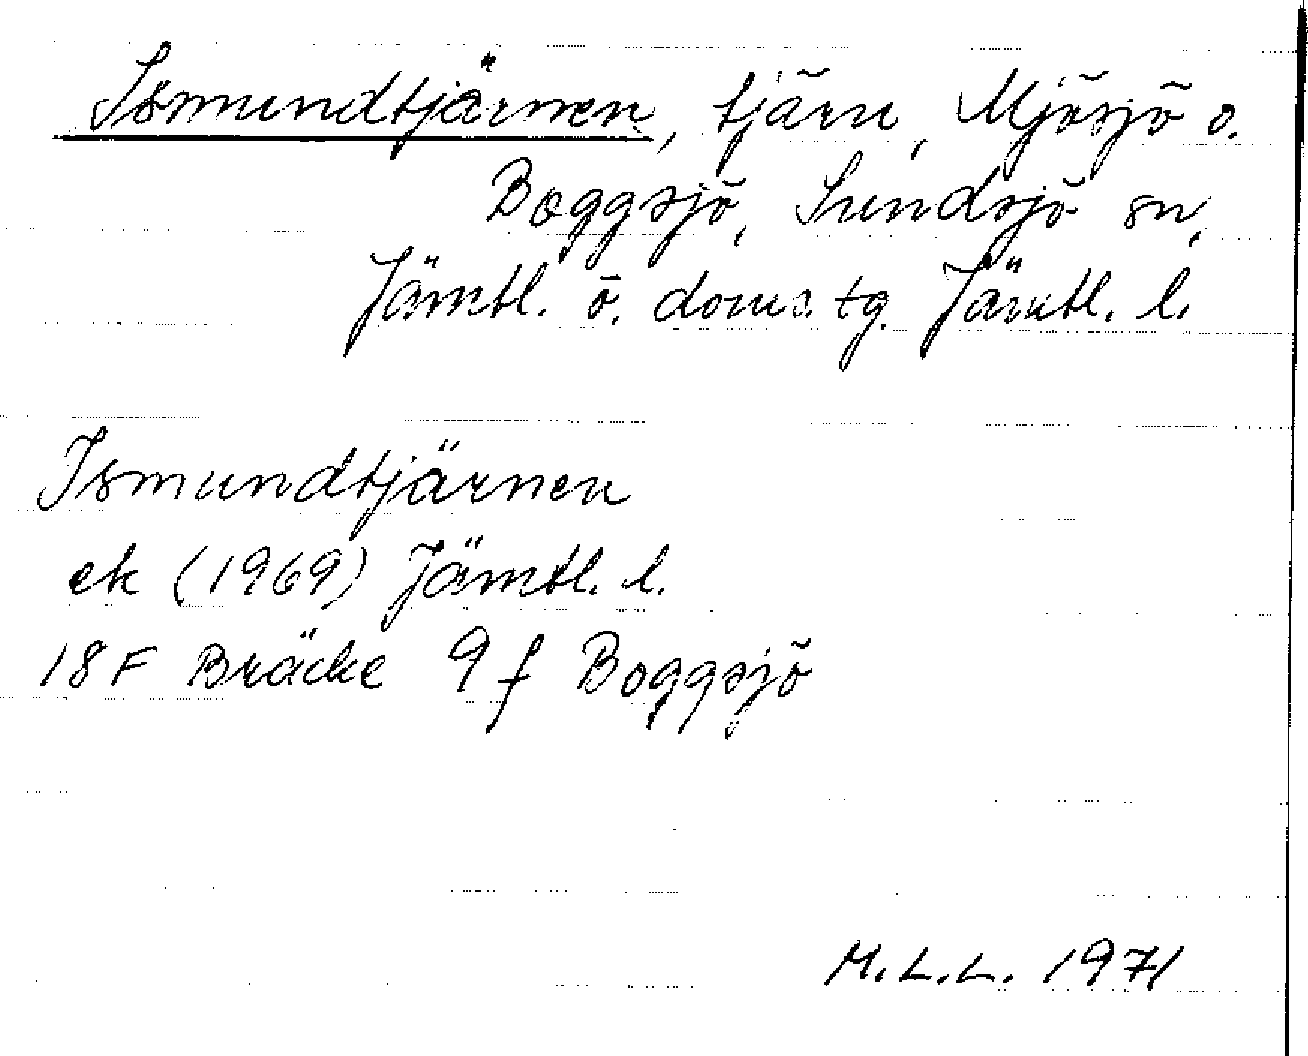 Ismundtjärnen, tjärn, Mjösjö o.
Boggsjö, Sundsjö sn,
Jämtl. ö. doms. tg. Jämtl. l.
Ismundtjärnen
ek (1969) Jämtl. l.
18F Bräcke 9f Boggsjö
M.L.L. 1971